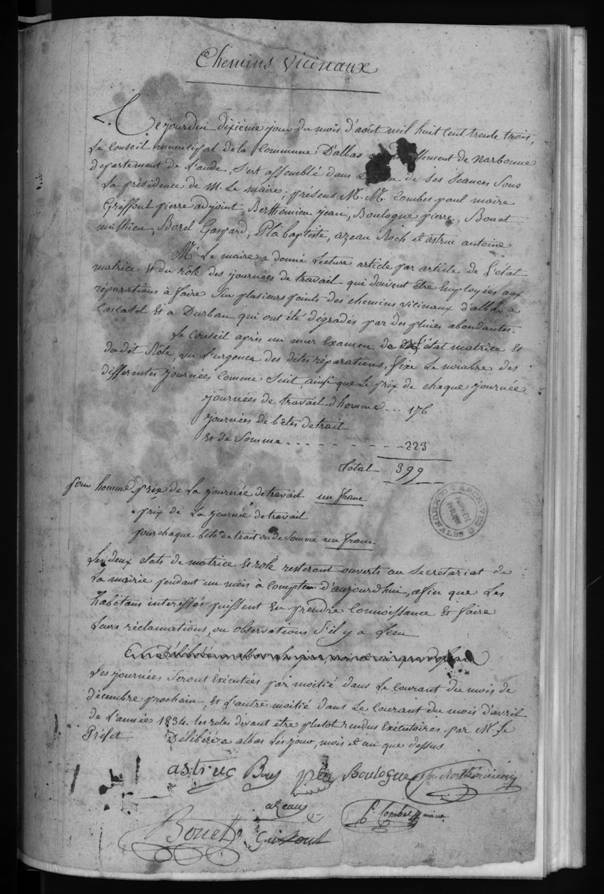 Chemins vicinaux
Ce jourdui dixieme jour du mois d'août mil huit cent trente trois,
Le Conseil municipal de la Commune D'albas de Narbonne
departement de l'aude, S'est assemblé dans de ses Seances Sous
La présidence de M. Le maire; présens M.M. Combes paul maire
Griffoul pierre adjoint, Berthomieu jean, Boulogue pierre, Bonet
mathieu, Borel Gaspard, Pla baptiste, azeau Roch et astruc antoine
Mr. Le maire a donné Lecture article par article de L'état
matrice & du rôle des journées de travail qui doivent être employées aux
réparations à faire Sur plusieurs points des chemins vicinaux d'albas à
Cascatel & à Durban qui ont été dégradés par des pluies abondantes.
Le Conseil après un mur Examen de L'état matrice &
du dit Rôle, vu L'urgence des dites réparations, fixe Le nombre des
différentes journées comme Suit ainsi que Le prix de chaque journée
journées de travail d'homme ... 176
journées de bêtes de trait
& de Somme - - - - - - - 223
Total - 399
prix de La journée de travail un franc
prix de La journée de travail
pour chaque bête de trait ou de Somme un franc
Les deux états de matrice & rôle resteront ouverts au Secretariat de
La mairie pendant un mois à compter d'aujourdhui, afin que Les
habitans interessés puissent En prendre connoissance & faire
Leurs réclamations, ou observations S'il y a Lieu
Les journées Seront Executées par moitié dans Le courant du mois de
décembre prochain, & L'autre moitié dans Le courant du mois d'avril
de L'année 1834. Les roles devant etre plutot rendus Exécutoires par M. Le
Préfet Délibéré a albas Les jour, mois et an que dessus
astruc Boulogue Berthomieu
azeau P. Combes maire
Bonet Griffoul